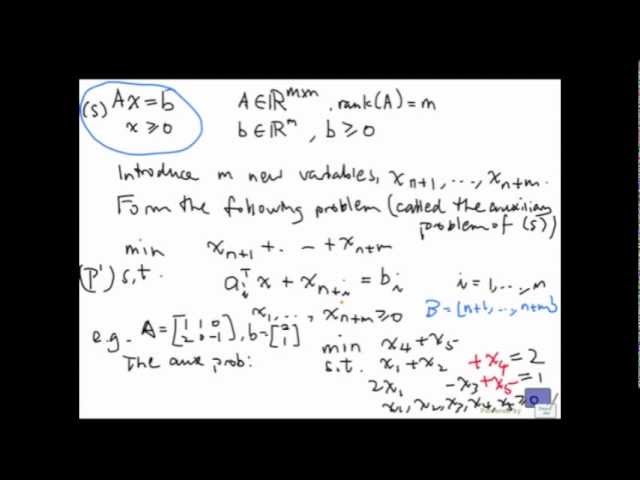 (S) Ax = b   A ∈ ℝ^{m×m}, rank(A) = m
x ≥ 0   b ∈ ℝ^m, b ≥ 0
Introduce m new variables, x_{n+1}, ..., x_{n+m}.
Form the following problem (called the auxiliary
problem of (S))
min x_{n+1} + . - + x_{n+m}
(P') s.t. a_i^T x + x_{n+i} = b_i   i = 1, ..., m
x_1, ..., x_{n+m} ≥ 0   B = {n+1, ..., n+m}
e.g. A = [1 1 0; 2 0 -1], b = [2; 1]
The aux prob: min x_4 + x_5
s.t. x_1 + x_2 + x_4 = 2
2x_1 - x_3 + x_5 = 1
x_1, x_2, x_3, x_4, x_5 ≥ 0